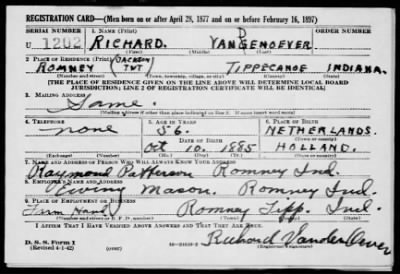 REGISTRATION CARD—(Men born on or after April 28, 1877 and on or before February 16, 1897)
SERIAL NUMBER 1. NAME (Print) ORDER NUMBER
U 1202 RICHARD. D VANGENOEVER
2. PLACE OF RESIDENCE (Print) (JACKSON TWT)
ROMNEY TIPPECANOE INDIANA.
(Number and street) (Town, township, village, or city) (County) (State)
[THE PLACE OF RESIDENCE GIVEN ON THE LINE ABOVE WILL DETERMINE LOCAL BOARD
JURISDICTION; LINE 2 OF REGISTRATION CERTIFICATE WILL BE IDENTICAL]
3. MAILING ADDRESS
Same.
[Mailing address if other than place indicated on line 2. If same insert word same]
4. TELEPHONE 5. AGE IN YEARS 6. PLACE OF BIRTH
none 56. NETHERLANDS.
DATE OF BIRTH
Oct 10. 1885 HOLLAND.
(Exchange) (Number) (Mo.) (Day) (Yr.) (State or country)
7. NAME AND ADDRESS OF PERSON WHO WILL ALWAYS KNOW YOUR ADDRESS
Raymond Patterson Romney Ind.
8. EMPLOYER'S NAME AND ADDRESS
Mason. Romney Ind.
9. PLACE OF EMPLOYMENT OR BUSINESS
Farm Hand Romney Tipp. Ind.
(Number and street or R. F. D. number) (Town) (County) (State)
I AFFIRM THAT I HAVE VERIFIED ABOVE ANSWERS AND THAT THEY ARE TRUE.
D. S. S. Form 1
(Revised 4-1-42) (over)
Richard VandenOever